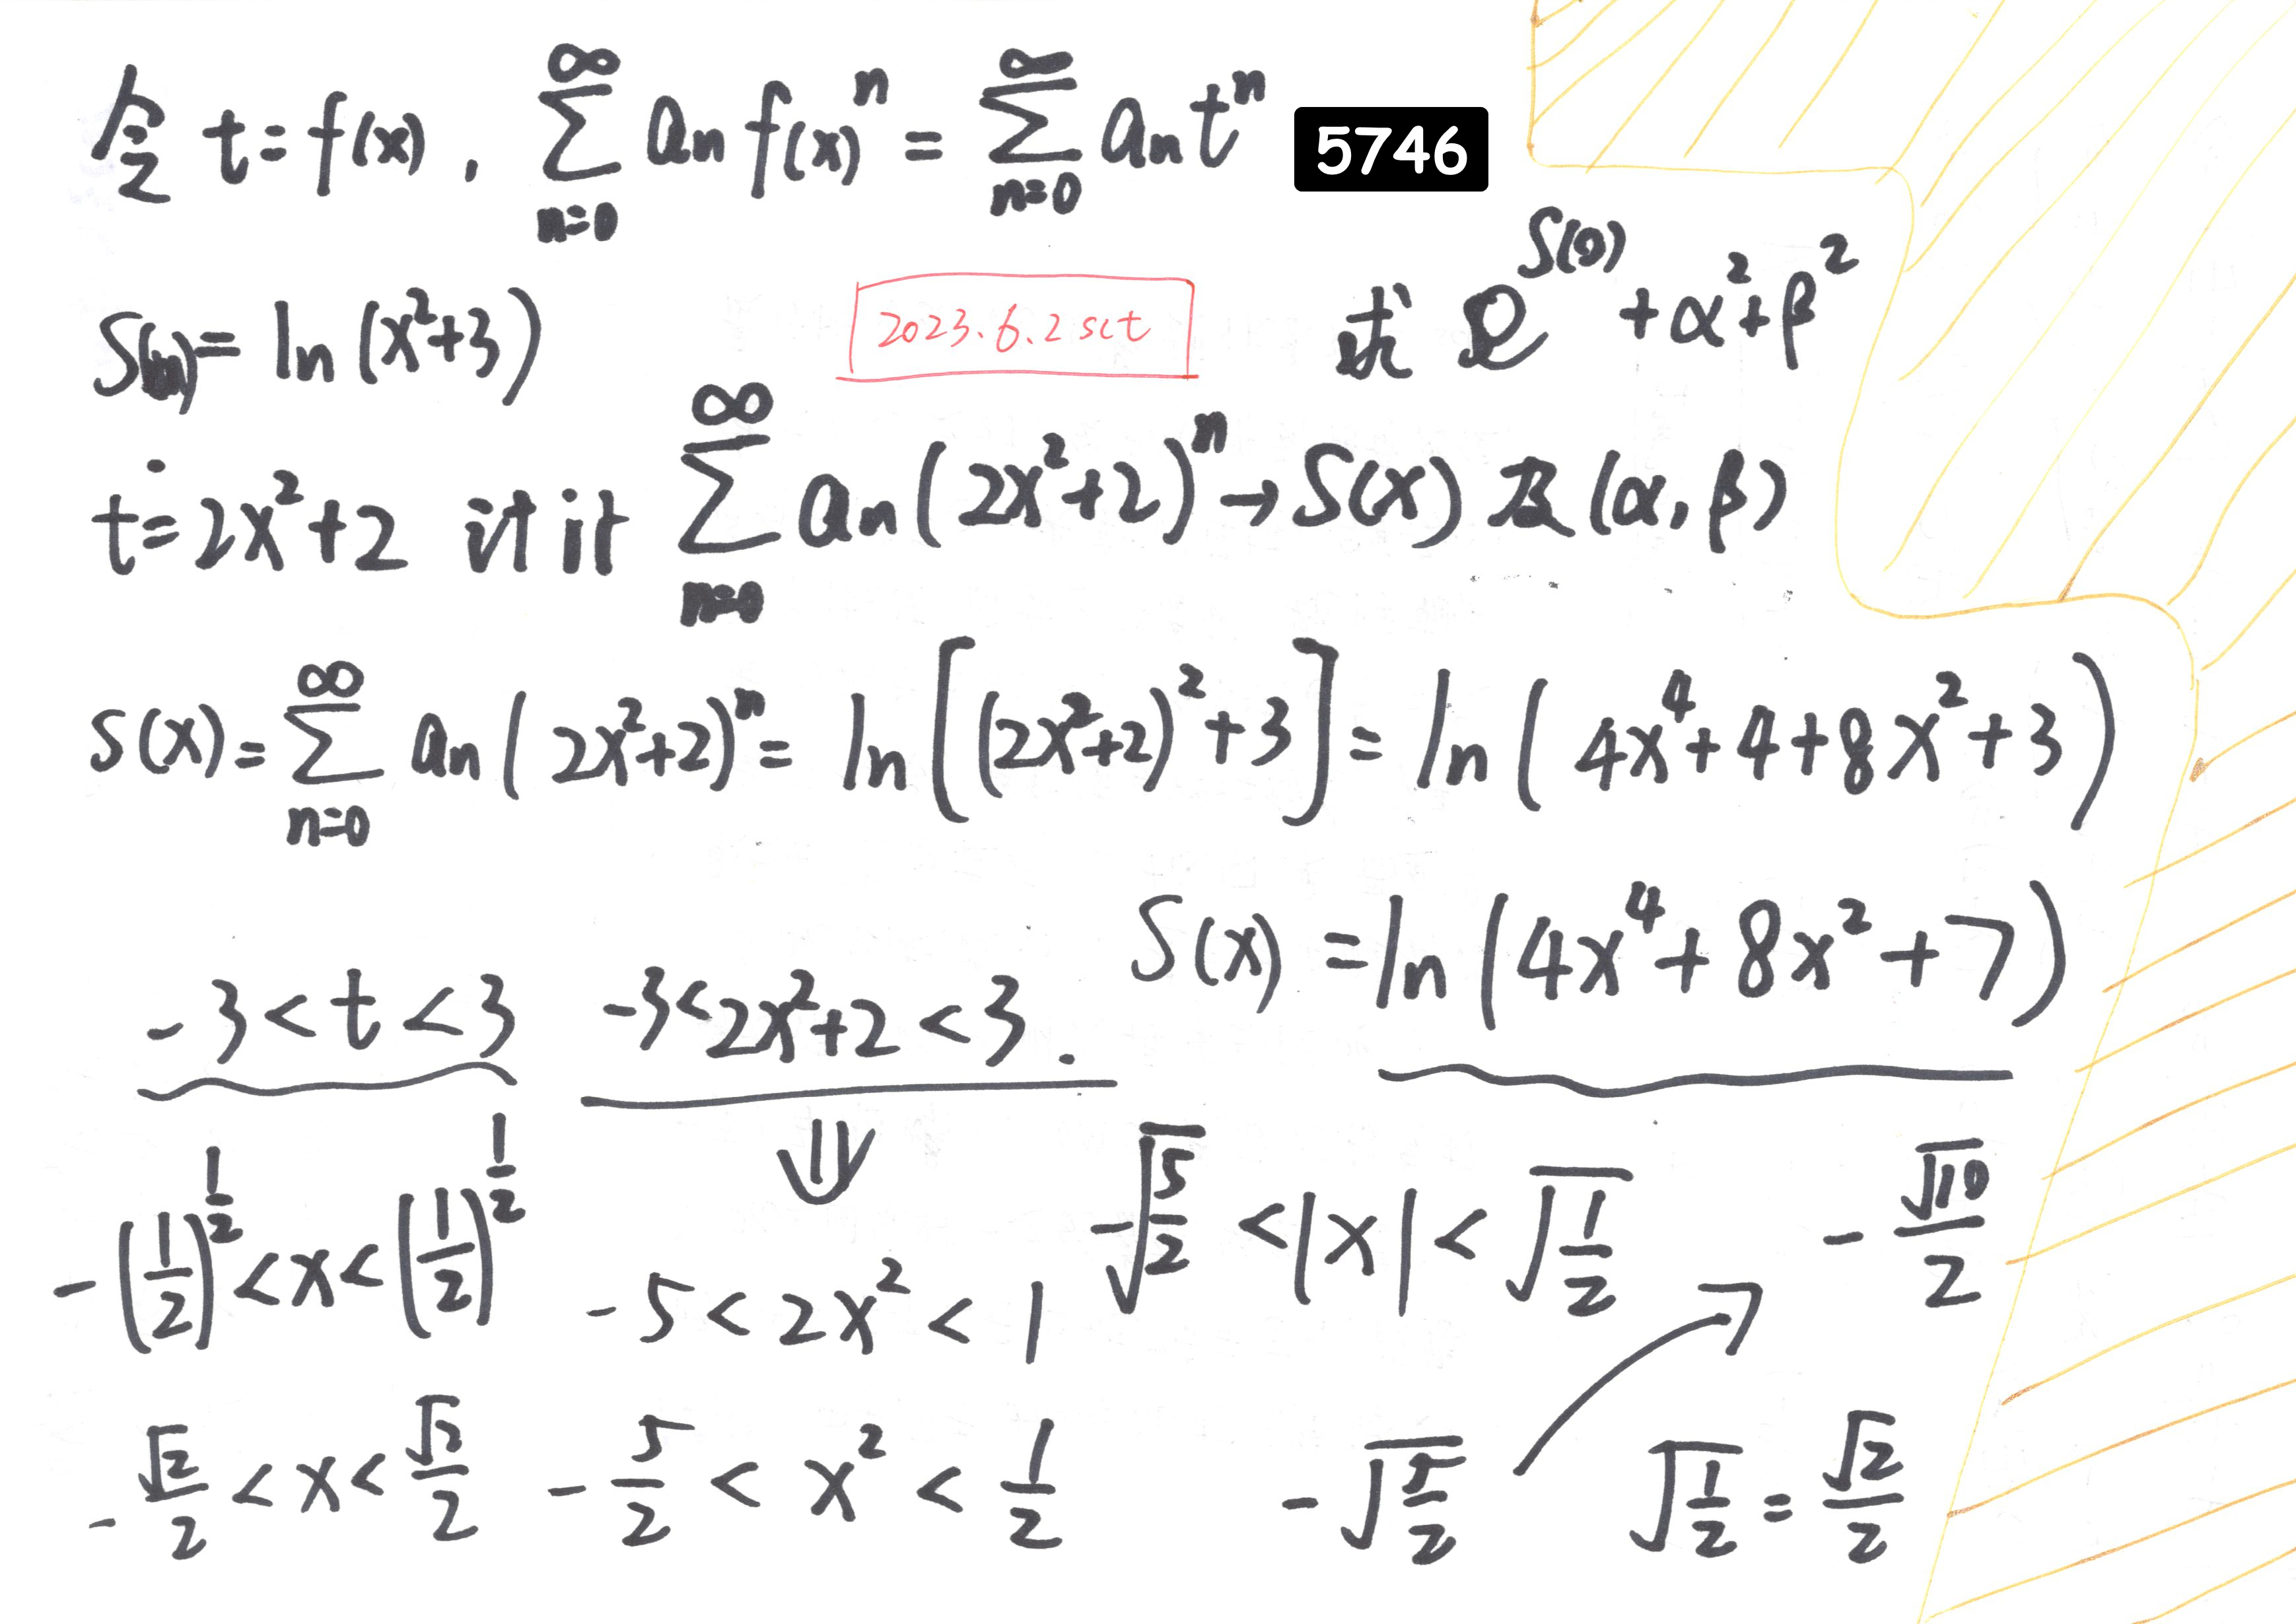 令 t=f(x), ∞∑n=0 an f(x)^n = ∞∑n=0 an t^n 5746
S(m)= ln(x²+3) 2023.6.2 sct 求 e^S(0) +α²+β²
t=2x²+2 讨讨 ∞∑n=0 an(2x²+2)^n → S(x) 及 (α,β)
S(x)= ∞∑n=0 an(2x²+2)^n = ln[(2x²+2)²+3] = ln(4x⁴+4+8x²+3)
S(x) =ln(4x⁴+8x²+7)
-3<t<3 -3<2x²+2<3.
⇓
-(1/2)^1/2 <x< (1/2)^1/2 -5<2x²<1 -√5/2 <|x|< √1/2 -√10/2
-√2/2 <x< √2/2 -5/2 < x² < 1/2 -√5/2 √1/2 = √2/2